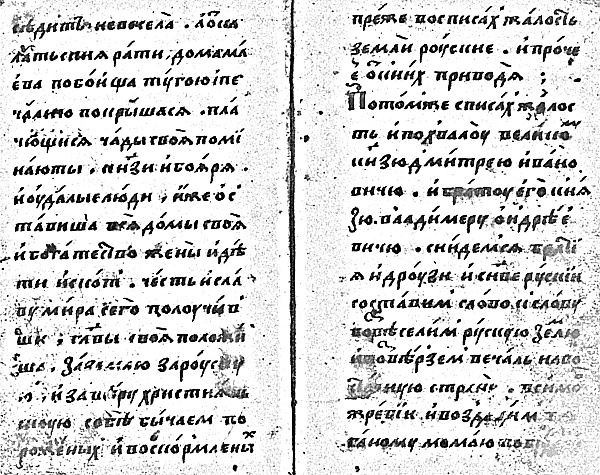 сѣдитъ невесела . а ѿ сея
катьския рати, до мама
ева побоища тугою і пе
чалию покрышася . пла
чющися чады своя помі
наюты . кнѧзи и бояря .
и оудалые люди , иже ос
тавиша вся домы своя
и богатество жены и дѣ
ти и скот . честь и сла
ву мира сего полоучив
ши , главы своя положи
ша . за землю за роускую
, и за вѣру христиань
скую собѣ бы чаем по
роженых и воскормленых
преже восписах жалость
земли роуские . и проче
е ѿ кних приводя ;
Потом же списах жалос
ть и похвалоу великому
кнѧзю дмитрею ивано
вичю . и братоу его кня
зю . владимеру ондрѣе
вичю . снидемся братї
я и дроузи и сынове рускии
составим слово к слову
возвеселим рускую землю
и возвѣрзем печаль на во
сточную страну . в симо
жребии и воздадим
ганому момаю